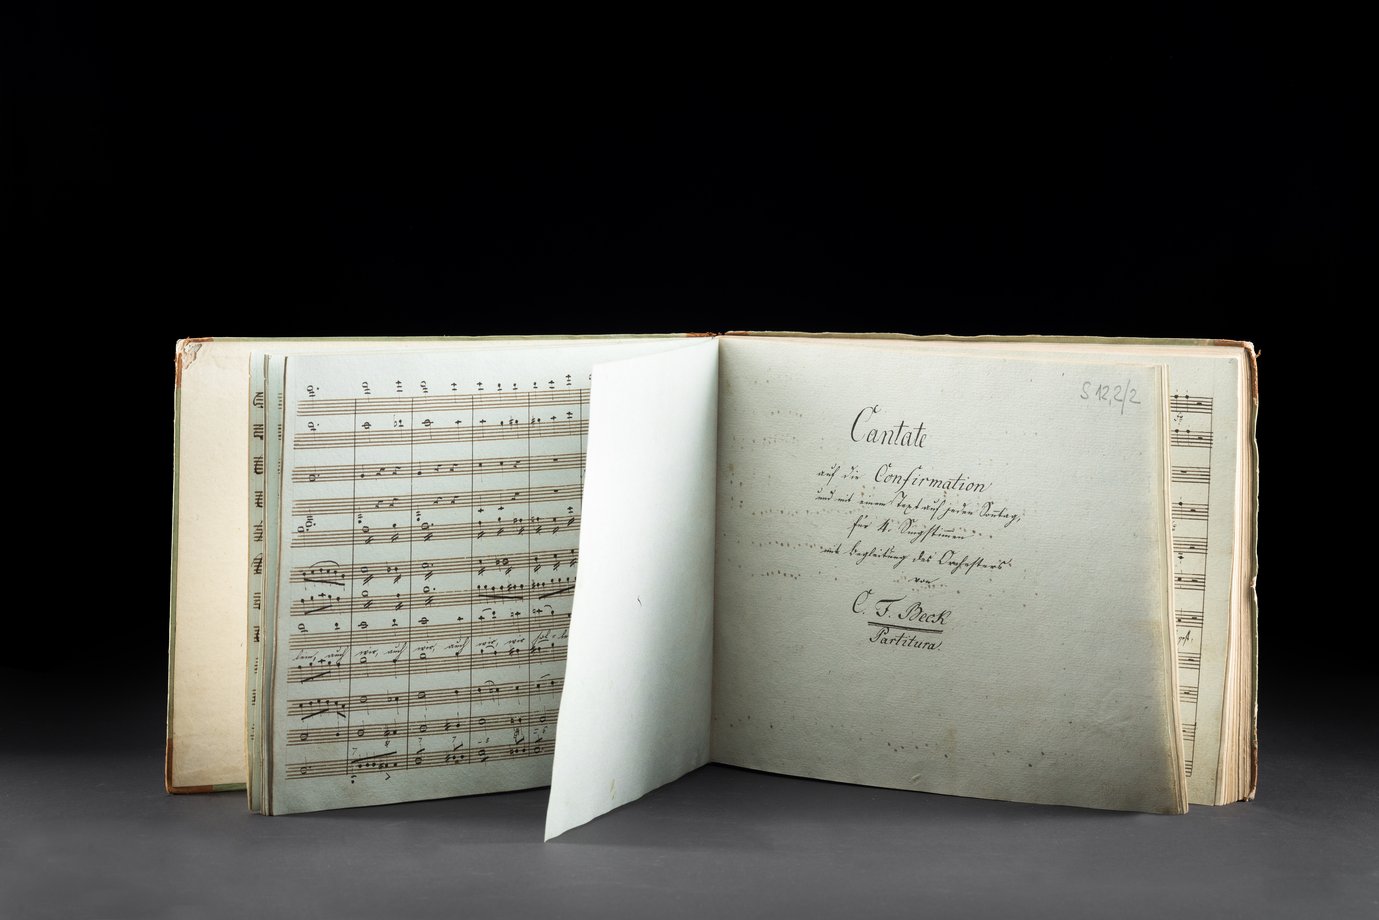 lein, auch wir, auch wir, auch wir, wir
S 12,2/2
Cantate
auf die Confirmation
und mit einem Text auf jeden Sontag,
für 4. Singstimmen
mit Begleitung des Orchesters
von
C. F. Beck
Partitura.